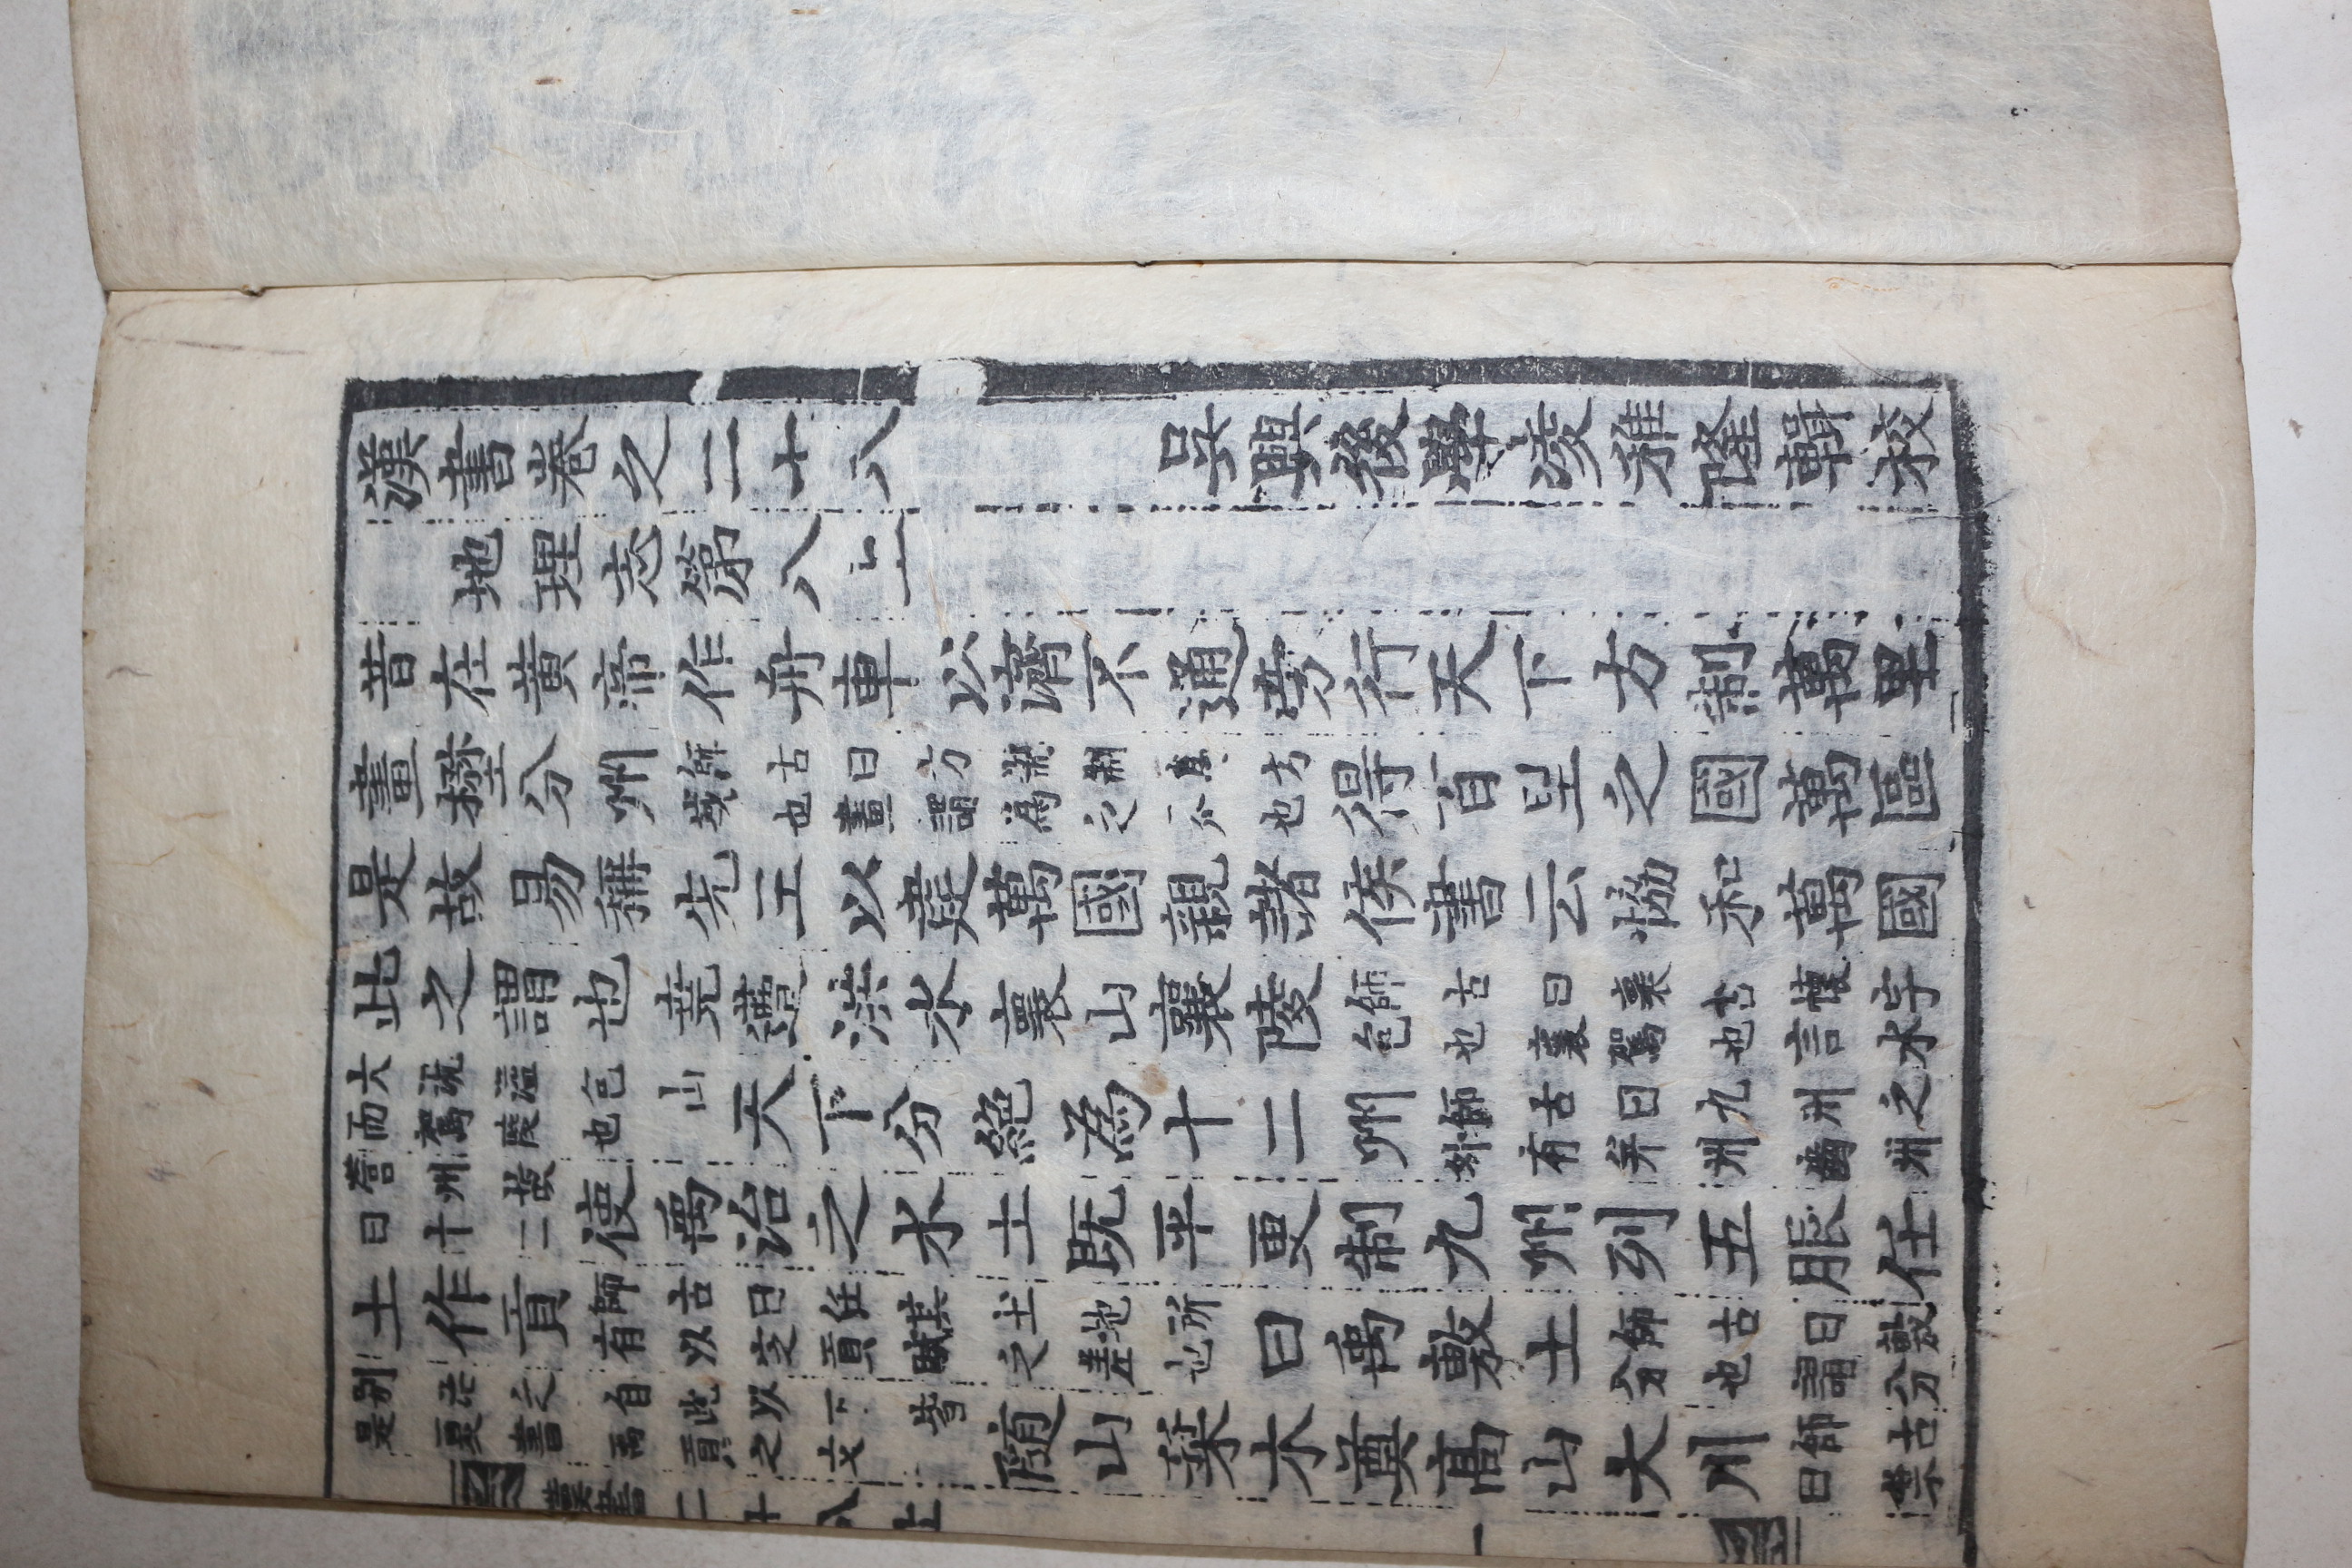 漢書卷之二十八　吳興後學凌稚隆輯校
地理志第八上
昔在黃帝作舟車以濟不通旁行天下方制萬里
畫壄分州師古曰方制制為方域也畫謂為之界也得百里之國萬區
是故易稱先王以建萬國親諸侯書云協和萬國
此之謂也堯遭洪水褱山襄陵師古曰褱古懷字包也襄駕也言水
大汎溢包山而駕陵也天下分絕為十二州師古曰九州之外有并州幽州
營州故曰十二使禹治之水土既平更制九州列五服任
土作貢師古曰任其土地所有以定貢賦之差也曰禹敷土師古曰敷分也謂分
別治之自此以下皆是夏書禹貢之文隨山栞木奠高山大川師古曰栞
漢書二十八上　一